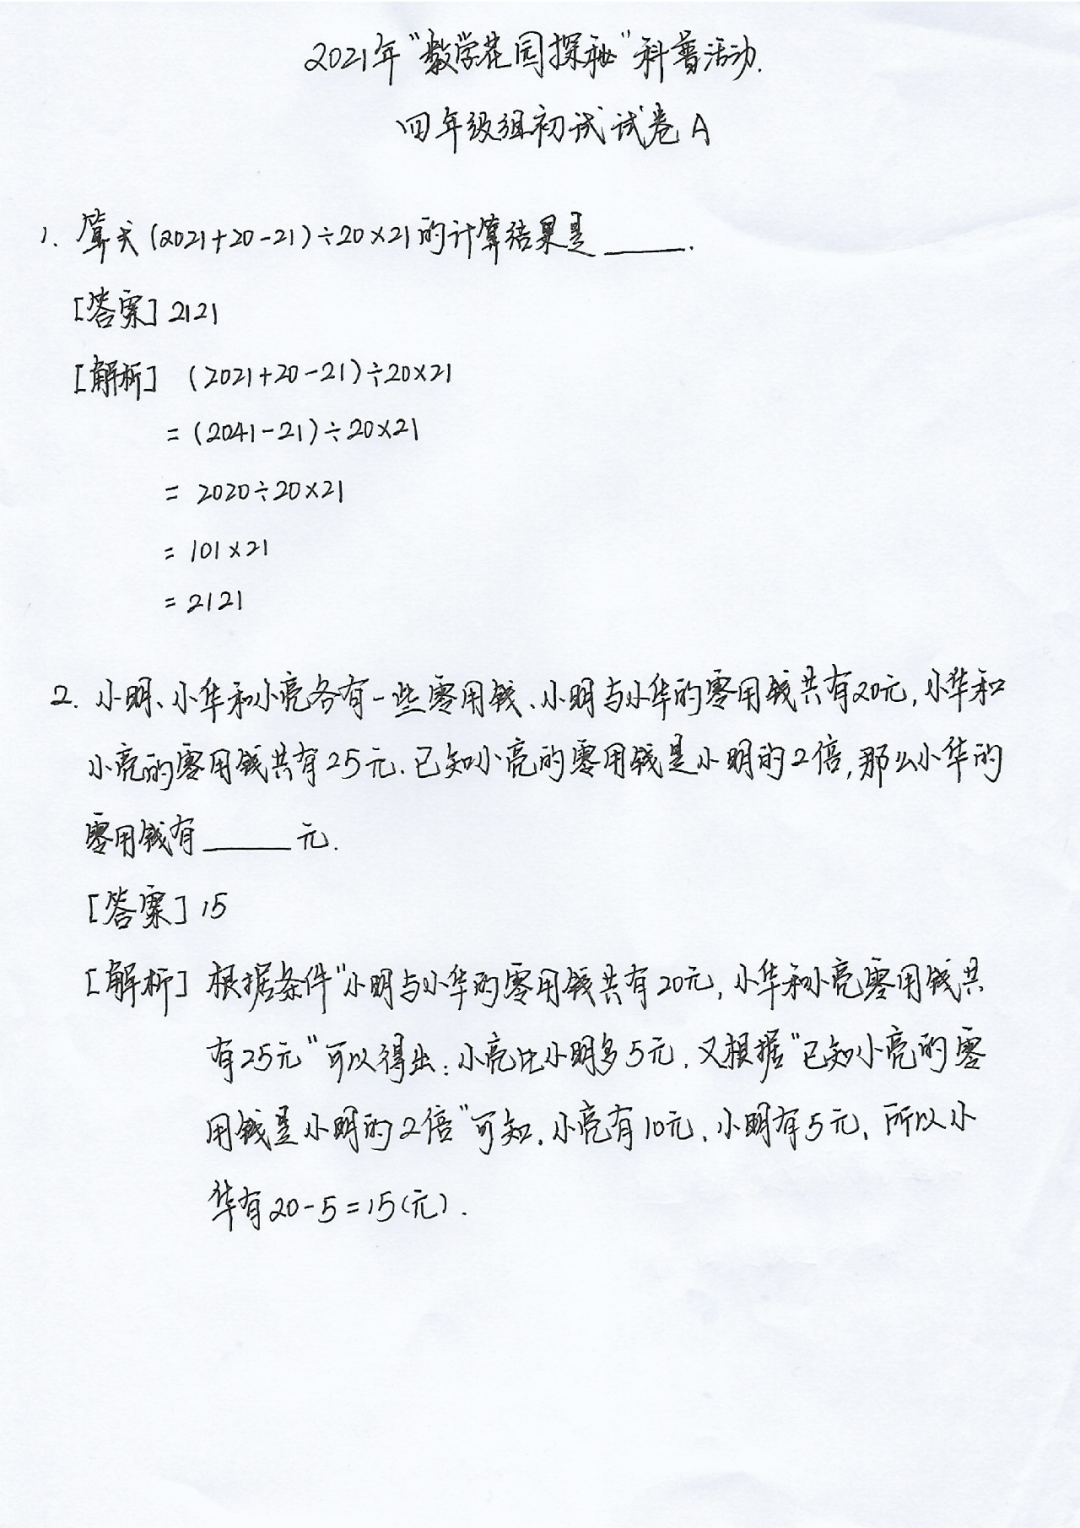 2021年“数学花园探秘”科普活动.
四年级组初试试卷A
1. 算式(2021+20-21)÷20×21的计算结果是______.
[答案] 2121
[解析] (2021+20-21)÷20×21
= (2041-21)÷20×21
= 2020÷20×21
= 101×21
= 2121
2. 小明、小华和小亮各有一些零用钱、小明与小华的零用钱共有20元,小华和
小亮的零用钱共有25元.已知小亮的零用钱是小明的2倍,那么小华的
零用钱有______元.
[答案] 15
[解析] 根据条件“小明与小华的零用钱共有20元,小华和小亮零用钱共
有25元”可以得出:小亮比小明多5元.又根据“已知小亮的零
用钱是小明的2倍”可知,小亮有10元,小明有5元,所以小
华有20-5=15(元).